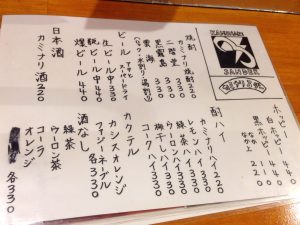 ホッピー
白ホッピー 440
黒ホッピー 440
なか 220
酎ハイ
カミナリハイ 220
レモンハイ 330
緑茶ハイ 330
ウーロンハイ 330
梅干しハイ 330
コークハイ 330
カクテル
カシスオレンジ
ファジーネーブル
各330
酒なし
緑茶
ウーロン茶
コーラ
オレンジ
各330
焼酎
カミナリ焼酎 220
二階堂 330
黒霧島 330
雲海 330
ビール
アサヒスーパードライ
生ビール中 330
瓶ビール中 440
燻ビール 440
日本酒
カミナリ酒 220